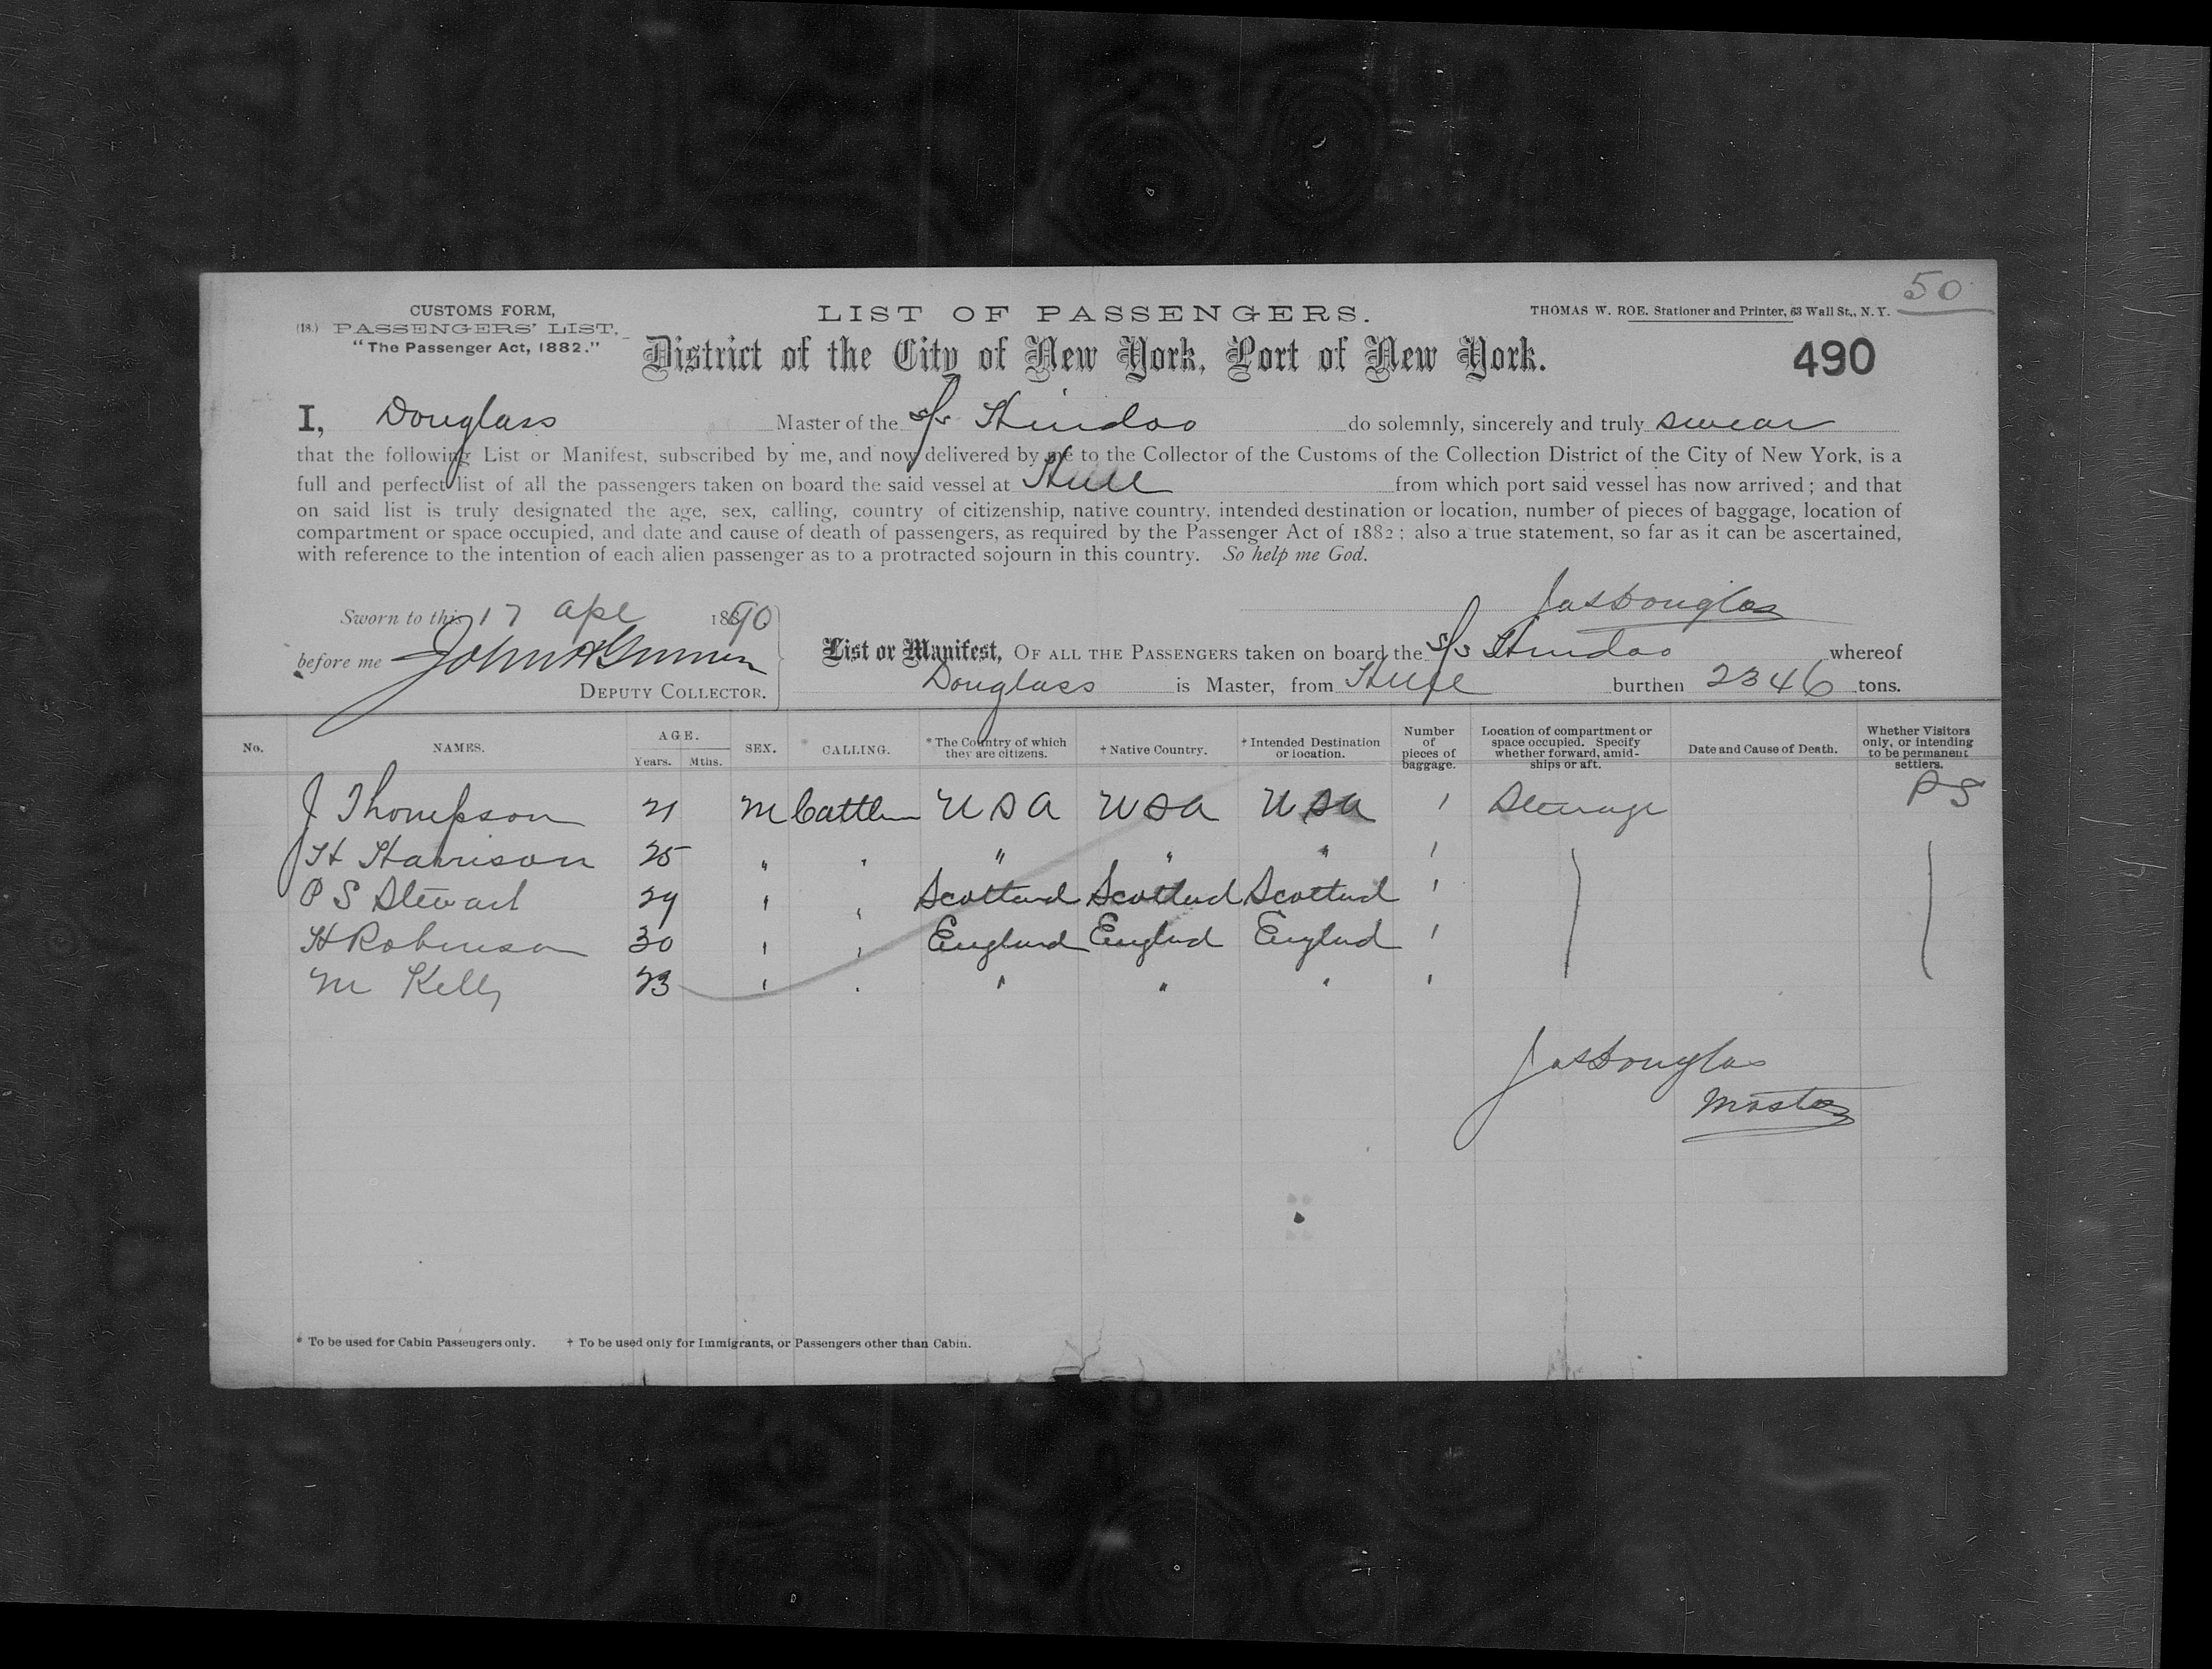 50
CUSTOMS FORM,
(18.) PASSENGERS' LIST.
"The Passenger Act, 1882."
LIST OF PASSENGERS.
THOMAS W. ROE, Stationer and Printer, 63 Wall St., N. Y.
District of the City of New York, Port of New York.
490
I, Douglass Master of the s/s Hindoo do solemnly, sincerely and truly swear
that the following List or Manifest, subscribed by me, and now delivered by me to the Collector of the Customs of the Collection District of the City of New York, is a
full and perfect list of all the passengers taken on board the said vessel at Hull from which port said vessel has now arrived; and that
on said list is truly designated the age, sex, calling, country of citizenship, native country, intended destination or location, number of pieces of baggage, location of
compartment or space occupied, and date and cause of death of passengers, as required by the Passenger Act of 1882; also a true statement, so far as it can be ascertained,
with reference to the intention of each alien passenger as to a protracted sojourn in this country. So help me God.
Jas Douglas
Sworn to this 17 Apl 1890
before me John
DEPUTY COLLECTOR.
List or Manifest, OF ALL THE PASSENGERS taken on board the s/s Hindoo whereof
Douglass is Master, from Hull burthen 2346 tons.
No. NAMES. AGE. Years. Mths. SEX. CALLING. *The Country of which they are citizens. †Native Country. †Intended Destination or location. Number of pieces of baggage. Location of compartment or space occupied. Specify whether forward, amidships or aft. Date and Cause of Death. Whether Visitors only, or intending to be permanent settlers.
J Thompson 21 M Cattlem USA USA USA 1 Steerage PS
H Harrison 25 " " " " " 1
P S Stewart 29 " " Scotland Scotland Scotland 1
H Robinson 30 " " England England England 1
M Kelly 23 " " " " " 1
Jas Douglas
Master
* To be used for Cabin Passengers only. † To be used only for Immigrants, or Passengers other than Cabin.